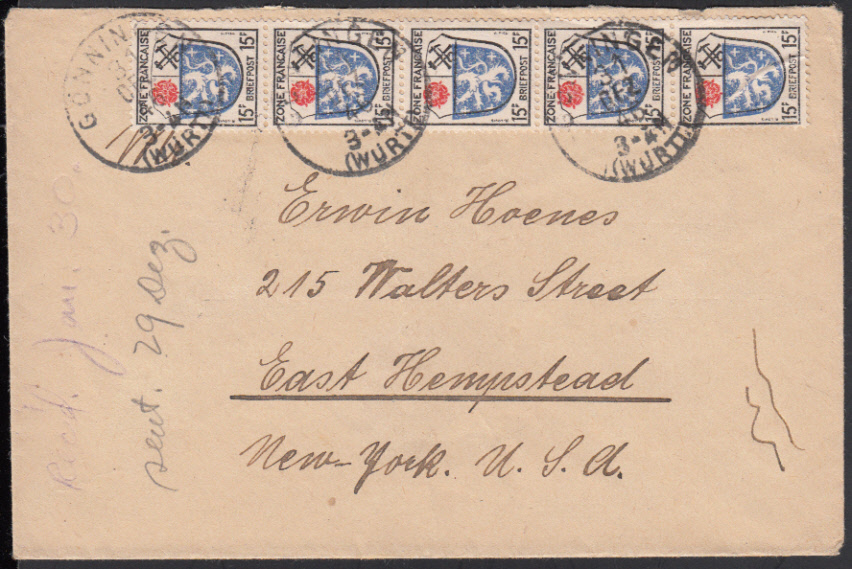 ZONE FRANÇAISE 15F BRIEFPOST
ZONE FRANÇAISE 15F BRIEFPOST
ZONE FRANÇAISE 15F BRIEFPOST
ZONE FRANÇAISE 15F BRIEFPOST
15F BRIEFPOST
GÖNNIN
(WÜRTT
3-4
(WÜRTT
INGEN
31
DEZ
46
3-4N
(WÜRTT
Erwin Hoenes
215 Walters Street
East Hempstead
New-York. U. S. A.
sent. 29 Dez.
Rec'd. Jan. 30.